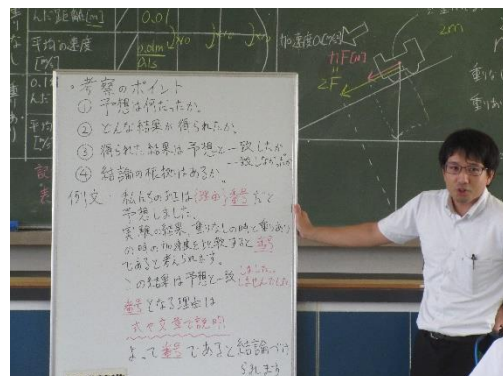 んだ距離[m]
0.01
平均の速度
[m/s]
0.01m
0.1s
加速度
2m
F[N]
2F
重り
重りあり
平均
[m/s]
記
表
・考察のポイント
① 予想は何だったか。
② どんな結果が得られたか。
③ 得られた結果は予想と一致したか。
一致しなかったか
④ 結論の根拠はあるか。
例文
私たちの班は(理由)番号だと
予想しました。
実験の結果、重りなしの時と重りあり
の時の加速度を比較すると番号
であると考えられます。
この結果は予想と一致 しました。
しませんでした。
番号となる理由は
式や文章で説明
よって番号であると結論づけ
られます